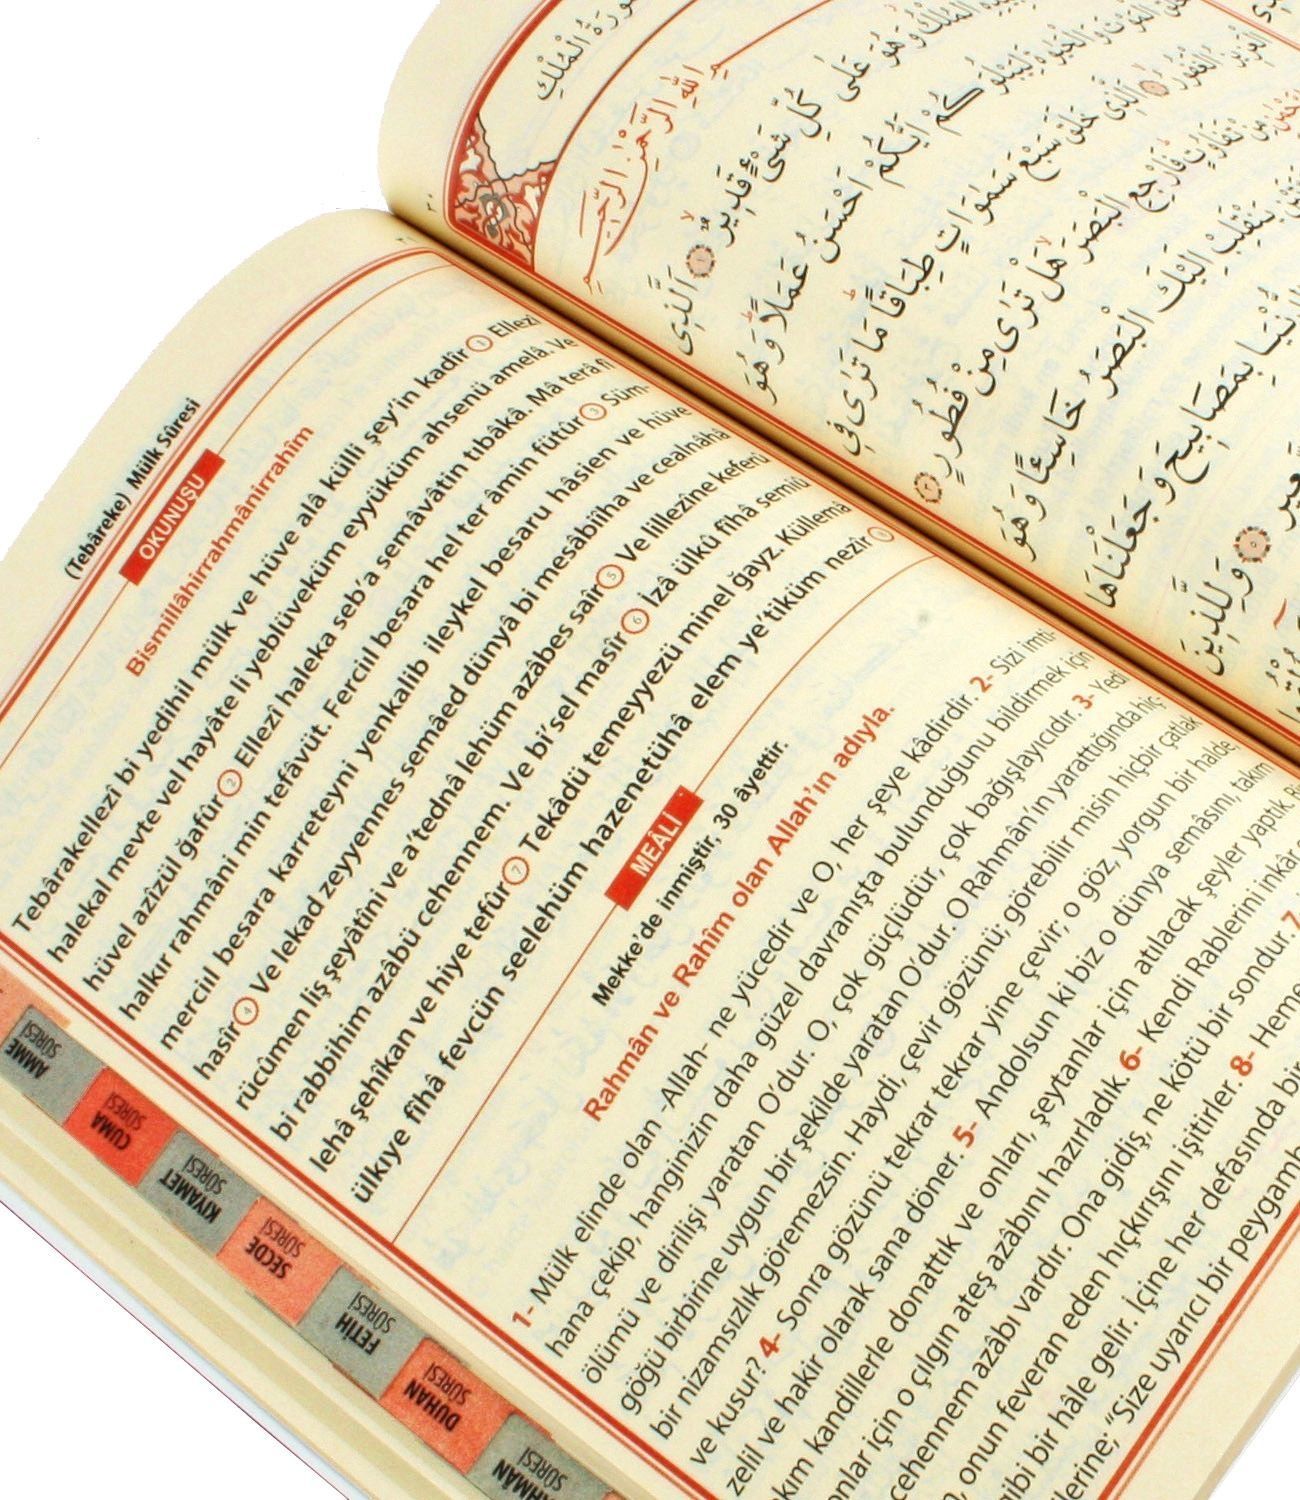 (Tebâreke) Mülk Sûresi
OKUNUŞU
Bismillâhirrahmânirrahîm
Tebârakellezî bi yedihil mülk ve hüve alâ külli şey'in kadîr 1 Ellezî
halekal mevte vel hayâte li yeblüveküm eyyüküm ahsenü amelâ. Ve
hüvel azîzül ğafûr 2 Ellezî haleka seb'a semâvâtin tıbâkâ. Mâ terâ fî
halkır rahmâni min tefâvüt. Ferciıl besara hel ter âmin fütûr 3 Süm-
merciıl besara karreteyni yenkalib ileykel besaru hâsien ve hüve
hasîr 4 Ve lekad zeyyennes semâed dünyâ bi mesâbîiha ve cealnâhâ
rücûmen liş şeyâtîni ve a'tednâ lehüm azâbes saîr 5 Ve lillezîne keferû
bi rabbihim azâbü cehennem. Ve bi'sel masîr 6 İzâ ülkû fîhâ semiû
lehâ şehîkan ve hiye tefûr 7 Tekâdü temeyyezü minel ğayz. Küllemâ
ülkıye fîhâ fevcün seelehüm hazenetühâ elem ye'tiküm nezîr 8
MEÂLİ
Mekke'de inmiştir, 30 âyettir.
Rahmân ve Rahîm olan Allah'ın adıyla.
1- Mülk elinde olan -Allah- ne yücedir ve O, her şeye kâdirdir. 2- Sizi imti-
hana çekip, hanginizin daha güzel davranışta bulunduğunu bildirmek için
ölümü ve dirilişi yaratan O'dur. O, çok güçlüdür, çok bağışlayıcıdır. 3- Yedi
göğü birbirine uygun bir şekilde yaratan O'dur. O Rahmân'ın yarattığında hiç-
bir nizamsızlık göremezsin. Haydi, çevir gözünü; görebilir misin hiçbir çatlak
ve kusur? 4- Sonra gözünü tekrar tekrar yine çevir; o göz, yorgun bir halde,
zelil ve hakir olarak sana döner. 5- Andolsun ki biz o dünya semâsını, takım
kım kandillerle donattık ve onları, şeytanlar için atılacak şeyler yaptık.
onlar için o çılgın ateş azabını hazırladık. 6- Kendi Rablerini inkâr
cehennem azâbı vardır. Ona gidiş, ne kötü bir sondur. 7
onun feveran eden hıçkırışını işitirler. 8- Heme
gibi bir hâle gelir. İçine her defasında bir
lerine; "Size uyarıcı bir peygamb
AMME SÛRESİ
CUMA SÛRESİ
KIYAMET SÛRESİ
SECDE SÛRESİ
FETİH SÛRESİ
DUHAN SÛRESİ
HMÂN
سُورَةُ الْمُلْكِ
بِسْمِ اللّٰهِ الرَّحْمٰنِ الرَّحِيمِ
الْمُلْكُ وَهُوَ عَلٰى كُلِّ شَيْءٍ قَدِيرٌ ١ اَلَّذِى
الْمَوْتَ وَالْحَيٰوةَ لِيَبْلُوَكُمْ اَيُّكُمْ اَحْسَنُ عَمَلًا وَهُوَ
الْعَزِيزُ الْغَفُورُ ٢ اَلَّذِى خَلَقَ سَبْعَ سَمٰوَاتٍ طِبَاقًا مَا تَرٰى فِى
مِنْ تَفَاوُتٍ فَارْجِعِ الْبَصَرَ هَلْ تَرٰى مِنْ فُطُورٍ ٣
يَنْقَلِبْ اِلَيْكَ الْبَصَرُ خَاسِئًا وَهُوَ
بِمَصَابِيحَ وَجَعَلْنَاهَا
٥ وَلِلَّذِينَ